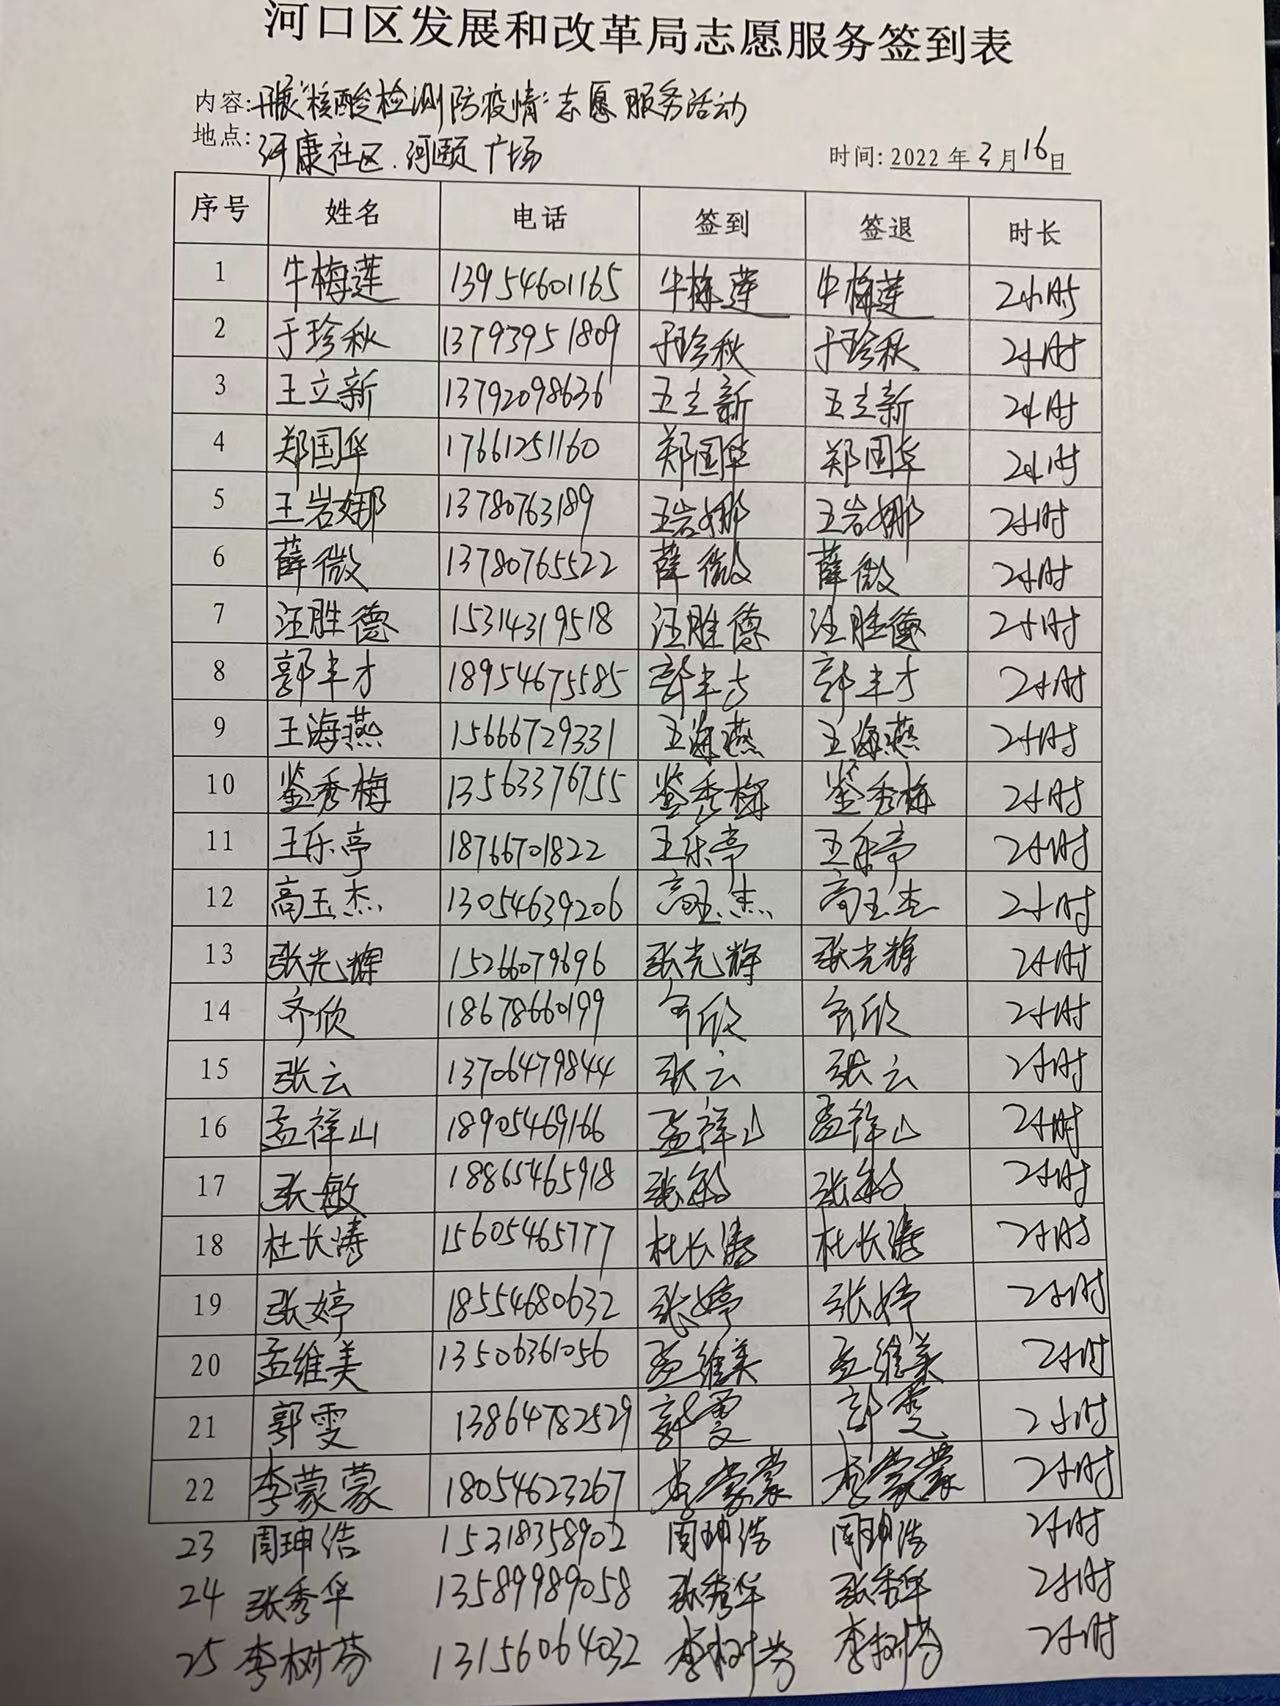 河口区发展和改革局志愿服务签到表
内容:开展"核酸检测防疫情"志愿服务活动
地点:河康社区.河颐广场 时间:2022年3月16日
序号 姓名 电话 签到 签退 时长
1 牛梅莲 13954601165 牛梅莲 牛梅莲 2小时
2 于珍秋 13793951809 于珍秋 于珍秋 2小时
3 王立新 13792098636 王立新 王立新 2小时
4 郑国华 17661251160 郑国华 郑国华 2小时
5 王岩娜 13780763189 王岩娜 王岩娜 2小时
6 薛微 13780765522 薛微 薛微 2小时
7 汪胜德 15314319518 汪胜德 汪胜德 2小时
8 郭丰才 18954675585 郭丰才 郭丰才 2小时
9 王海燕 15666729331 王海燕 王海燕 2小时
10 鉴秀梅 13563376755 鉴秀梅 鉴秀梅 2小时
11 王乐亭 18766701822 王乐亭 王乐亭 2小时
12 高玉杰 13054639206 高玉杰 高玉杰 2小时
13 张光辉 15266079696 张光辉 张光辉 2小时
14 齐欣 18678660199 齐欣 齐欣 2小时
15 张云 13706479844 张云 张云 2小时
16 孟祥山 18905469166 孟祥山 孟祥山 2小时
17 张敏 18865465918 张敏 张敏 2小时
18 杜长涛 15605465777 杜长涛 杜长涛 2小时
19 张婷 18554680632 张婷 张婷 2小时
20 孟维美 13506361056 孟维美 孟维美 2小时
21 郭雯 13864782529 郭雯 郭雯 2小时
22 李蒙蒙 18054623267 李蒙蒙 李蒙蒙 2小时
23 周珅浩 15318358902 周珅浩 周珅浩 2小时
24 张秀华 13589989058 张秀华 张秀华 2小时
25 李树芬 13156064032 李树芬 李树芬 2小时